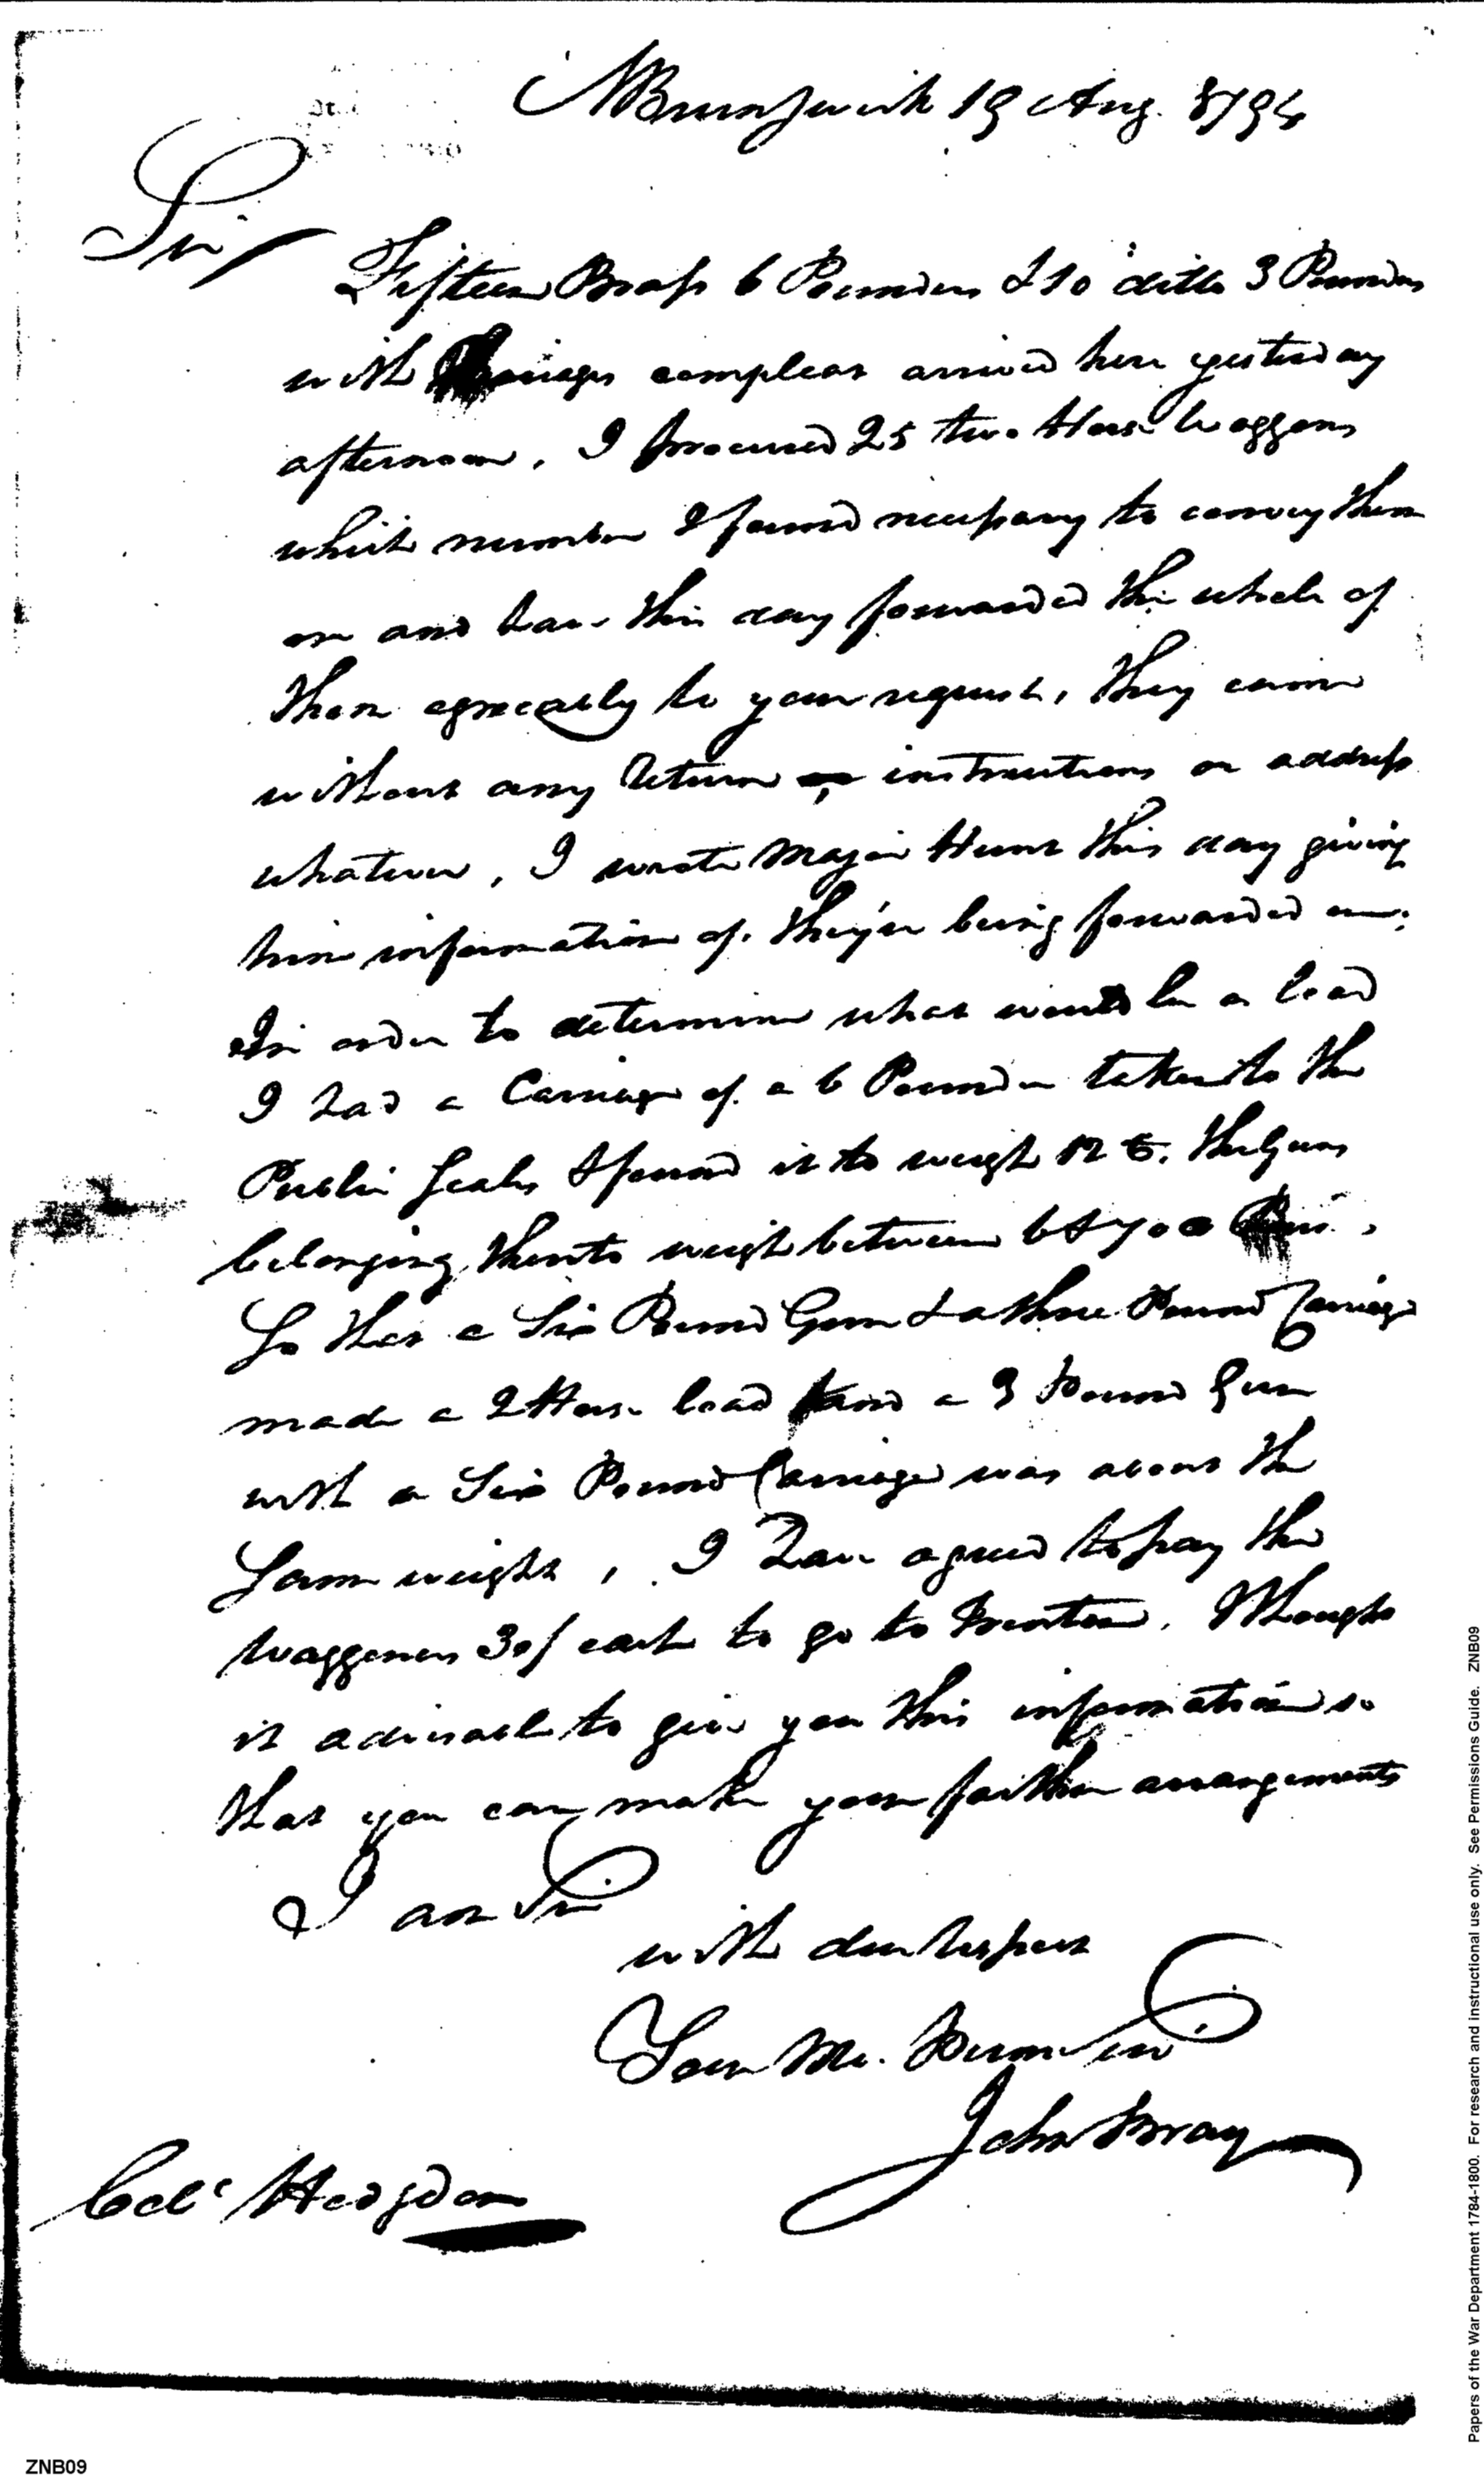 NBrunswick 19 Aug. 1794
Sir/
Fifteen Brass 6 Pounders & 10 ditto 3 Pounders
with Carriages compleat arrived here yesterday
afternoon, I procured 25 two Horse Waggons
which number I found necessary to convey them
on and have this day forwarded the whole of
them agreeably to your request, they came
without any Return instructions or address
whatever, I wrote Major Hunt this day giving
him information of they're being forwarded on:
In order to determine what would be a load
I had a Carriage of a 6 Pounder taken to the
Public Scales & found it to weigh 12 C. the Guns
belonging thereto weigh between 6 & 700
So that a Six Pound Gun & a three Pound Carriage
made a 2 Horse load and a 3 Pound Gun
with a Six Pound Carriage was about the
Same weight, I have agreed to pay the
Waggoners 30/ each to go to Trenton. I thought
it adviseable to give you this information so
that you can make your farther arrangements
I am Sir
with due Respect
Your Mo. Humn Ser
John Bray
Colo Hodgdon
Papers of the War Department 1784-1800. For research and instructional use only. See Permissions Guide. ZNB09
ZNB09